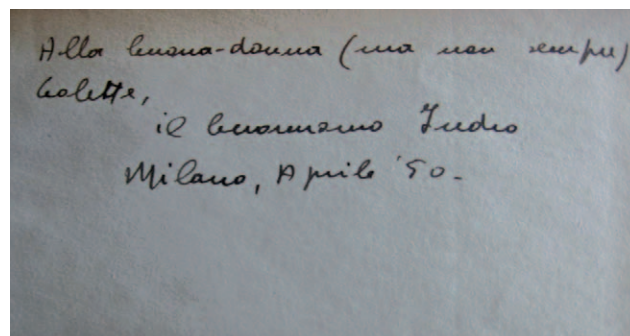 Alla buona-donna (ma non sempre)
Colette,
il buonuomo Indro
Milano, Aprile '50-